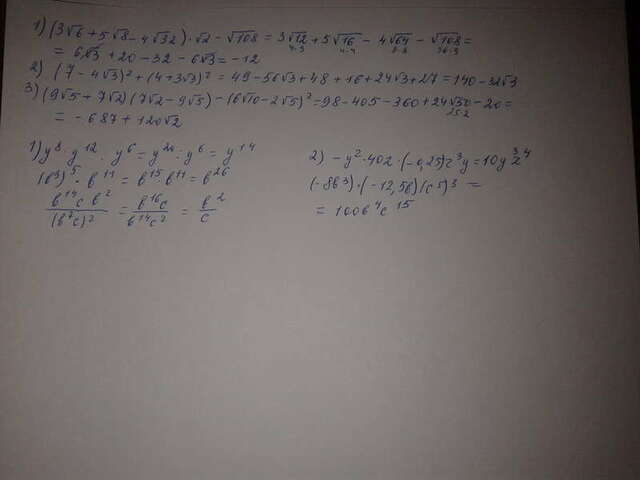 1) (3√6 + 5√8 - 4√32) · √2 - √108 = 3√12 + 5√16 - 4√64 - √108 =
4·3 4·4 8·8 36·3
= 6√3 + 20 - 32 - 6√3 = -12
2) (7 - 4√3)² + (4 + 3√3)² = 49 - 56√3 + 48 + 16 + 24√3 + 27 = 140 - 32√3
3) (9√5 + 7√2)(7√2 - 9√5) - (6√10 - 2√5)² = 98 - 405 - 360 + 24√50 - 20 =
25·2
= -687 + 120√2
1) y⁸ · y¹² : y⁶ = y²⁰ : y⁶ = y¹⁴
(b³)⁵ · b¹¹ = b¹⁵ · b¹¹ = b²⁶
b¹⁴c b² / (b⁷c)² = b¹⁶c / b¹⁴c² = b² / c
2) -y² · 40z · (-0,25)z³y = 10y³z⁴
(-8b³) · (-12,5b)(c⁵)³ =
= 100b⁴c¹⁵